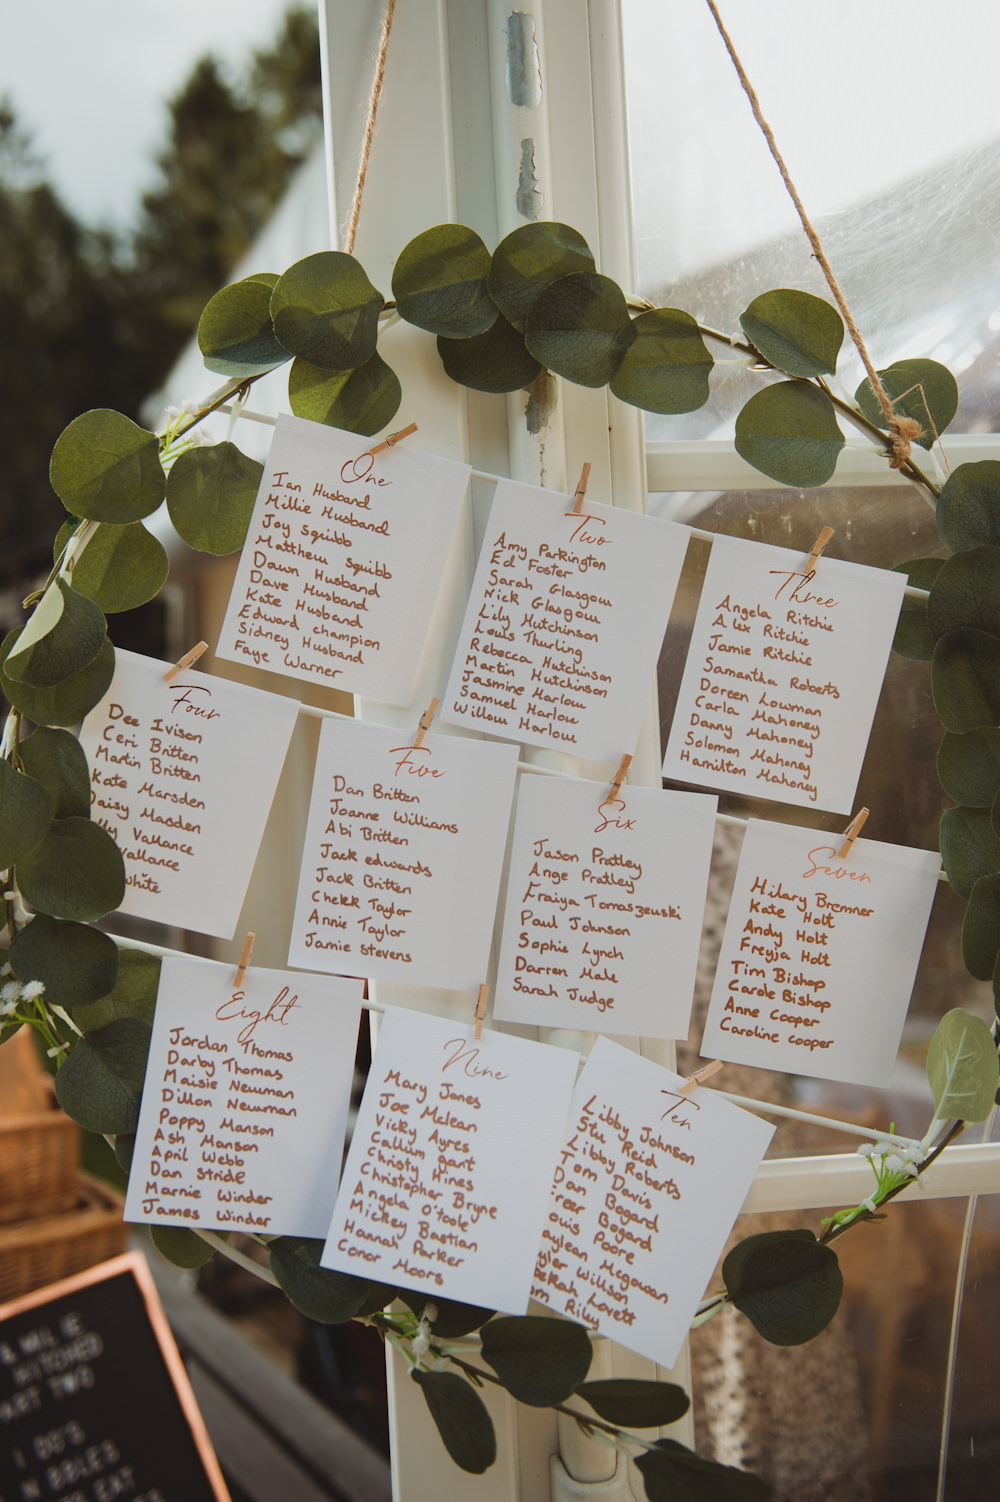 One
Ian Husband
Millie Husband
Joy squibb
Matthew squibb
Dawn Husband
Dave Husband
Kate Husband
Edward champion
Sidney Husband
Faye Warner
Two
Amy Parkington
Ed Foster
Sarah Glasgow
Nick Glasgow
Lily Hutchinson
Louis Thurling
Rebecca Hutchinson
Martin Hutchinson
Jasmine Harlow
Samuel Harlow
Willow Harlow
Three
Angela Ritchie
Alix Ritchie
Jamie Ritchie
Samantha Roberts
Doreen Lowman
Carla Mahoney
Danny Mahoney
Solomon Mahoney
Hamilton Mahoney
Four
Dee Ivison
Ceri Britten
Martin Britten
Kate Marsden
Daisy Madden
lly Vallance
Vallance
White
Five
Dan Britten
Joanne Williams
Abi Britten
Jack edwards
Jack Britten
Chekk Taylor
Annie Taylor
Jamie Stevens
Six
Jason Pratley
Ange Pratley
Fraiya Tomaszewski
Paul Johnson
Sophie Lynch
Darren Male
Sarah Judge
Seven
Hilary Bremner
Kate Holt
Andy Holt
Freyja Holt
Tim Bishop
Carole Bishop
Anne Cooper
Caroline cooper
Eight
Jordan Thomas
Darby Thomas
Maisie Newman
Dillon Newman
Poppy Manson
Ash Manson
April Webb
Dan Stride
Marnie Winder
James Winder
Nine
Mary Jones
Joe Mclean
Vicky Ayres
Callum Gant
Christy Hines
Christopher Bryne
Angela O'toole
Mickey Bastian
Hannah Parker
Conor Moors
Ten
Libby Johnson
Stu Reid
Libby Roberts
Tom Davis
Dan Bogard
Greer Bogard
ouis Poore
aylean Mcgowan
yler Willson
bekkah Lovett
om Riley
& MIL IE
ITCHED
ART TWO
I DO'S
N BBLES
EAT